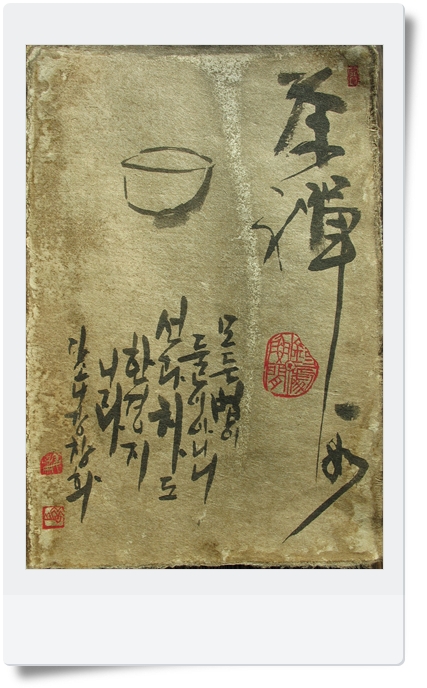 茶禪一如
모든 법이
둘이 아니니
선과 차도
한 경지
니라
강창화